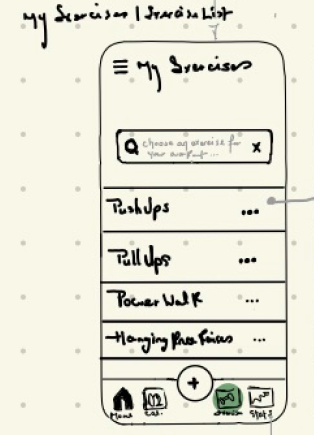 My Exercises | Exercise List
My Exercises
choose an exercise for
your workout...
x
Push Ups ...
Pull Ups ...
Power Walk ...
Hanging Knee Raises ...
+
Home Cal. Stats